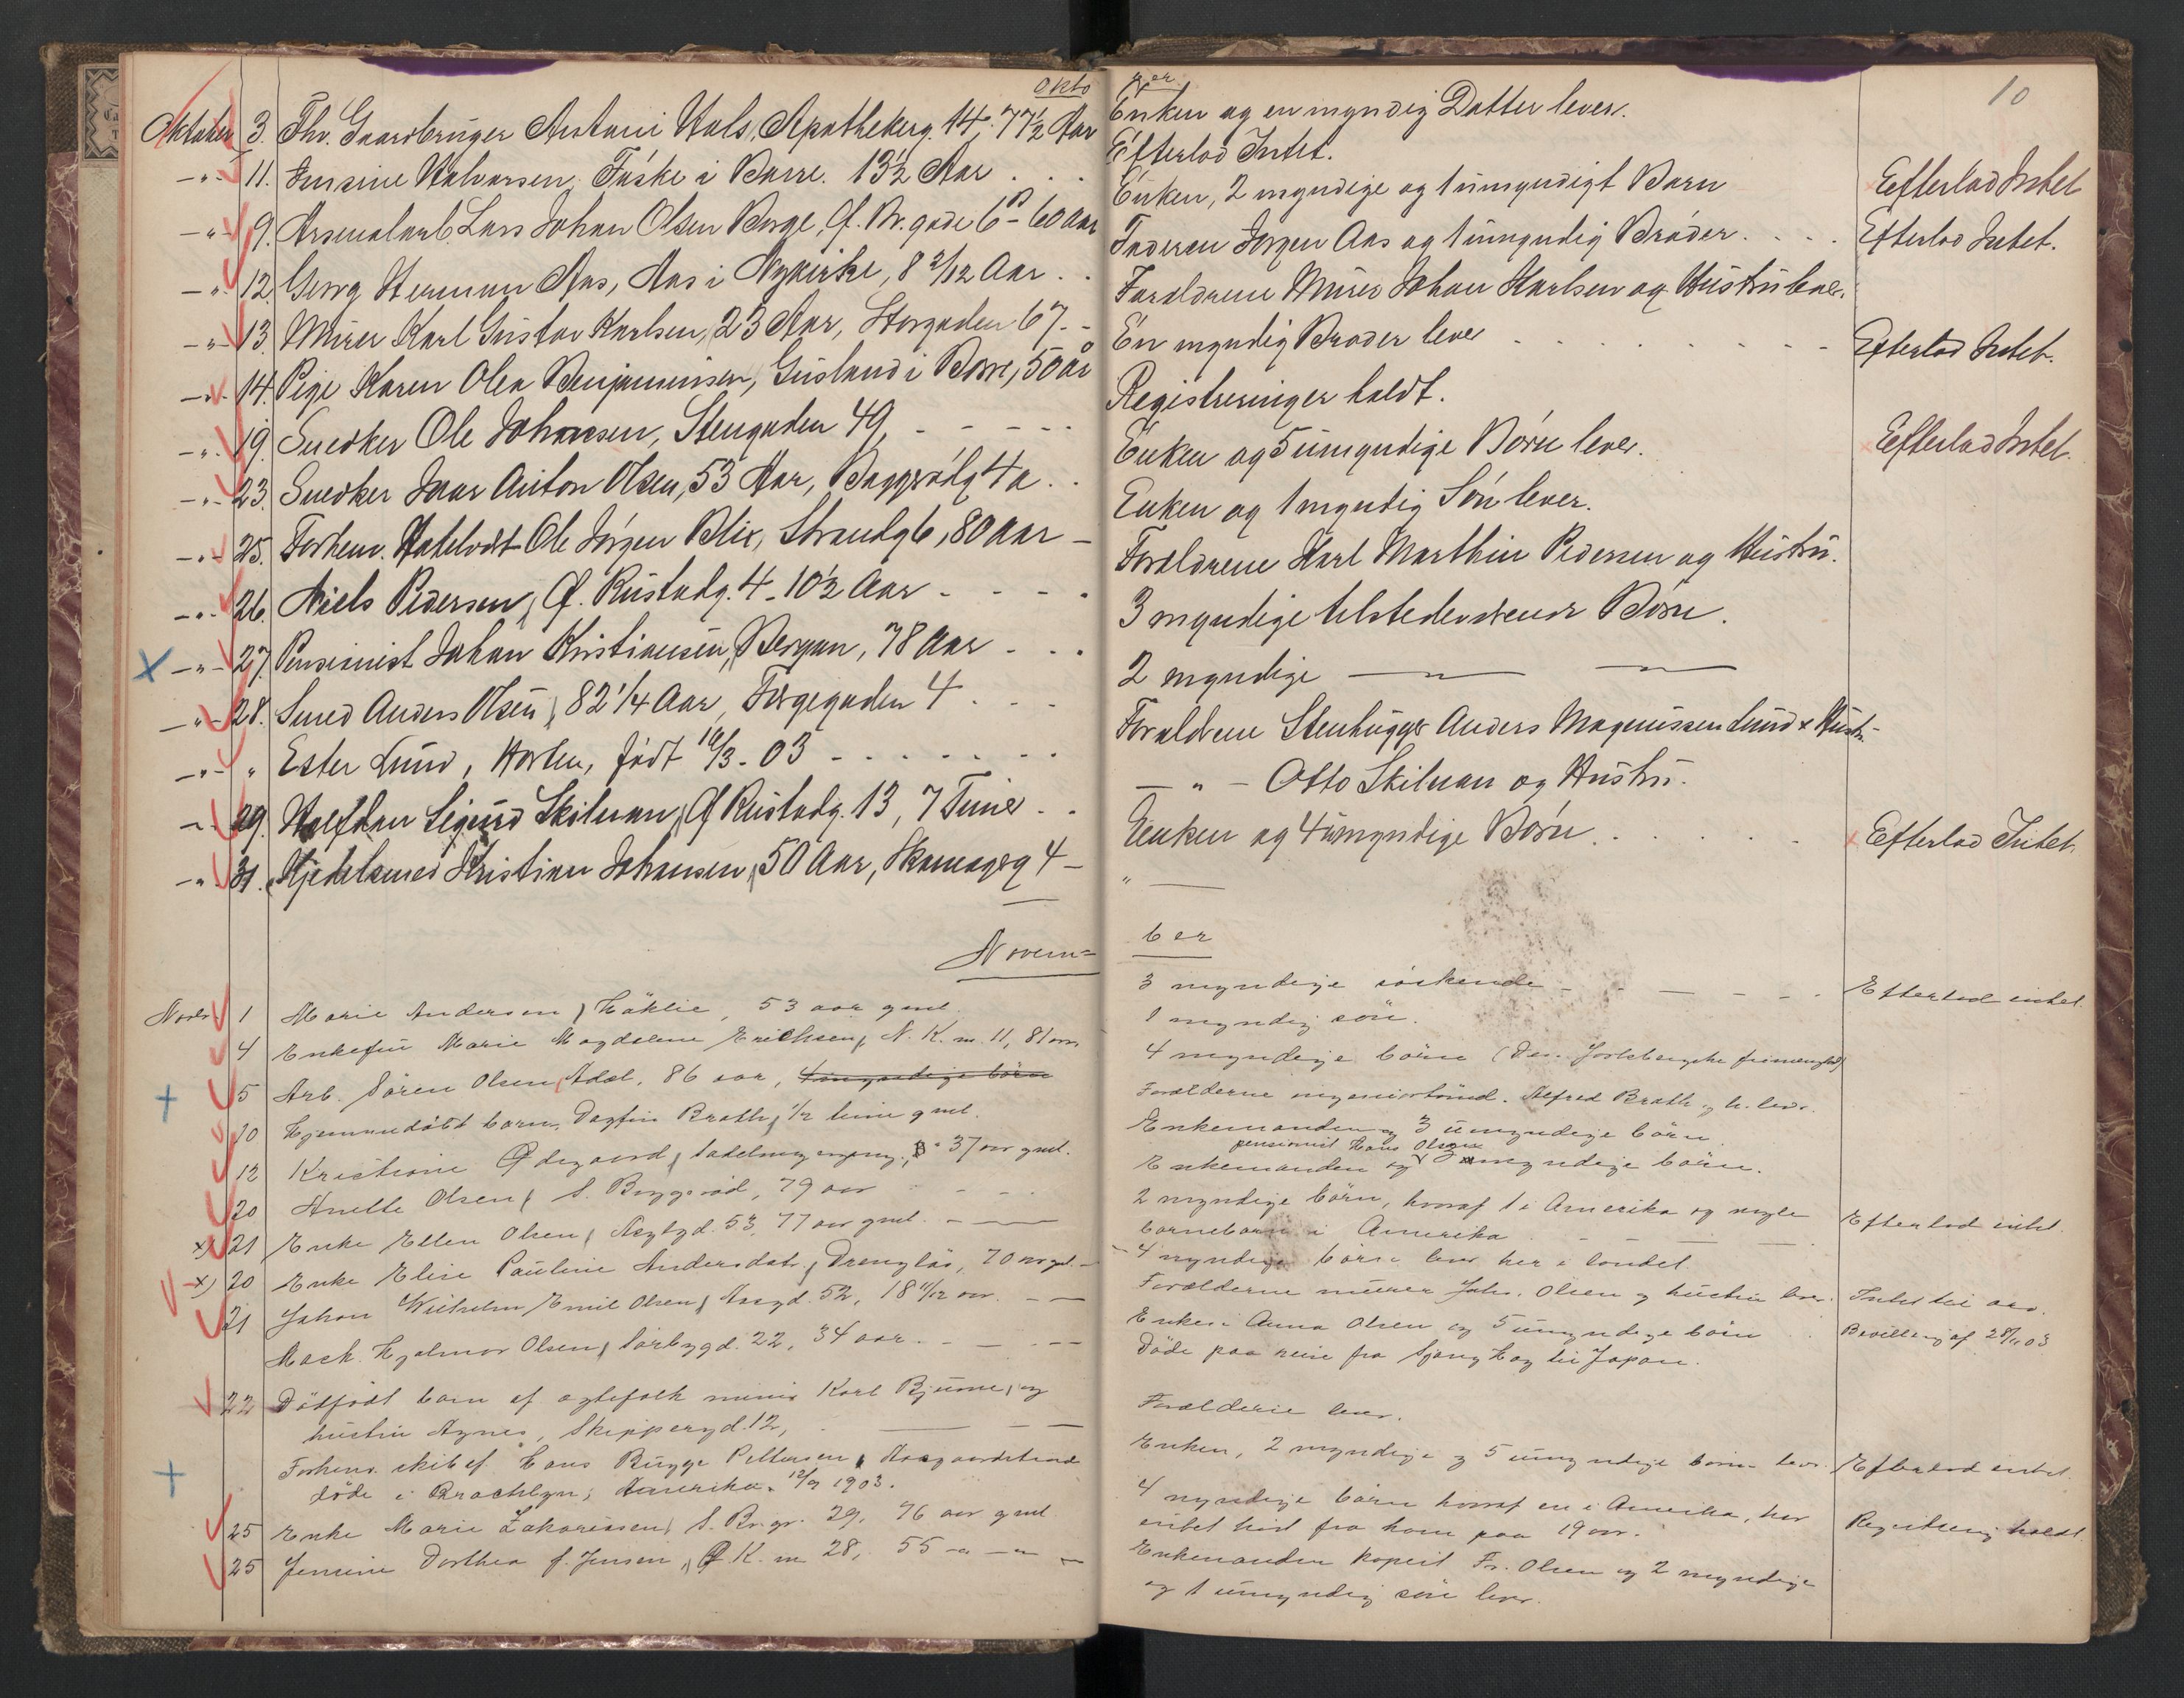 Okto ber
10
Oktober 3. Fhv. Gaardbruger Antoni Hals, Apothekerg. 14, 77½ Aar Enken og en myndig Datter lever.
-"- 11. Jensine Halvorsen, Fuske i Borre. 13½ Aar . . . Efterlod Intet.
-"- 9. Arsenalarb. Lars Johan Olsen Borge, Q. Br. gade 6B - 60 Aar Enken, 2 myndige og 1 umyndigt Barn Efterlod Intet
-"- 12. Georg Herman Aas, Aas i Nykirke, 8 2/12 Aar . . Faderen Jørgen Aas og 1 umyndig Broder . . . . Efterlod Intet.
-"- 13. Murer Karl Gustav Karlsen, 23 Aar, Storgaden 67. - Forældrene Murer Johan Karlsen og Hustru lever.
-"- 14. Pige Karen Olea Benjaminsen, Guslund i Borre, 50 år En myndig Broder lever - - - - Efterlod Intet.
-"- 19. Snedker Ole Johansen, Stengaden 49, - - - - - Registreringer holdt.
-"- 23. Snedker Anton Olsen, 53 Aar, Baggerødg 4a . . Enken og 5 umyndige Børn lever. Efterlod Intet.
-"- 25. Forhenv. Ole Jørgen Blix, Strandg 6, 80 Aar - Enken og 1 myndig Søn lever.
-"- 26. Niels Pedersen, Q. Rustadg. 4 - 10½ Aar - - - - Forældrene Karl Marthin Pedersen og Hustru.
X -"- 27. Pensionist Johan Kristiansen, Bergan, 78 Aar - . . 3 myndige tilstedeværende Børn.
-"- 28. Smed Anders Olsen, 82 1/4 Aar, Torgegaden 4 . - - 2 myndige —"— —"—
-"- " Ester Lund, Horten, født 10/3 - 03 - - - - - - Forældrene Stenhugger Anders Magnussen Lund & Hustr-
-"- 29. Halfdan Sigurd Skilman, Q Rustadg. 13, 7 Timer . . — " — Otto Skilman og Hustru.
-"- 31. Kjedelsmed Kristian Johansen, 50 Aar, Skomagerg 4 - Enken og 4 umyndige Børn . . . . Efterlod Intet.
" —
Novem= ber
Novbr 1 Marie Andersen, 53 aar gml. 3 myndige søskende - - - - Efterlod intet.
4 Enkefru Marie Magdalene Erichsen, N. K. m. 11, 81 aar 1 myndig søn.
+ 5 Arb. Søren Olsen, Adal, 86 aar, 4 myndige børn 4 myndige børn (Den Jarlsbergske)
10 Hjemmedøbt barn, Dagfin Brath, 1/2 time gml. Forælderne Alfred Brath og h. lever.
12 Kristiane Ødegaard, Sadelmagergang. 37 aar gml. Enkemanden og 3 umyndige børn.
pensionist Hans Olsen
20 Anette Olsen, S. Braggerød, 79 aar - - - Enkemanden og 3 myndige børn.
x) 21 Enke Ellen Olsen, Nygd. 53, 77 aar gml. - — 2 myndige børn, hvoraf 1 i Amerika og nogle Efterlod intet.
børnebørn i Amerika
x) 20 Enke Elise Pauline Andersdatr., 70 aar gml. - - 4 myndige børn lever her i landet.
21 Johan Wilhelm Emil Olsen, Aasgd. 52, 18 11/12 aar. — — Forælderne murer Johs. Olsen og hustru lever. Intet til arv.
Mask. Hjalmar Olsen, Sørbygd. 22, 34 aar. - — - — Enken Anna Olsen og 5 umyndige børn Bevilling af 28/11 03
Døde paa reise fra til Japan.
22 Dødfødt barn af ægtefolk murer Karl Bjune, og
hustru Agnes, Skippergd. 12, Forælderne lever.
+ Forhenv. Hans Bugge Pettersen, Aasgaardstrand Enken, 2 myndige og 5 umyndige børn lever. Efterlod intet.
døde i Brooklyn, Amerika. 12/9 1903.
25 Enke Marie Zakariasen, S. Br. gr. 29, 76 aar gml 4 myndige børn hvoraf en i Amerika, har Registrering holdt
intet hørt fra ham paa 19 aar.
25 Jensine Dorthea f. Jensen, Q K. m 28, 55 —"— Enkemanden Fr. Olsen og 2 myndige
og 1 umyndig søn lever.